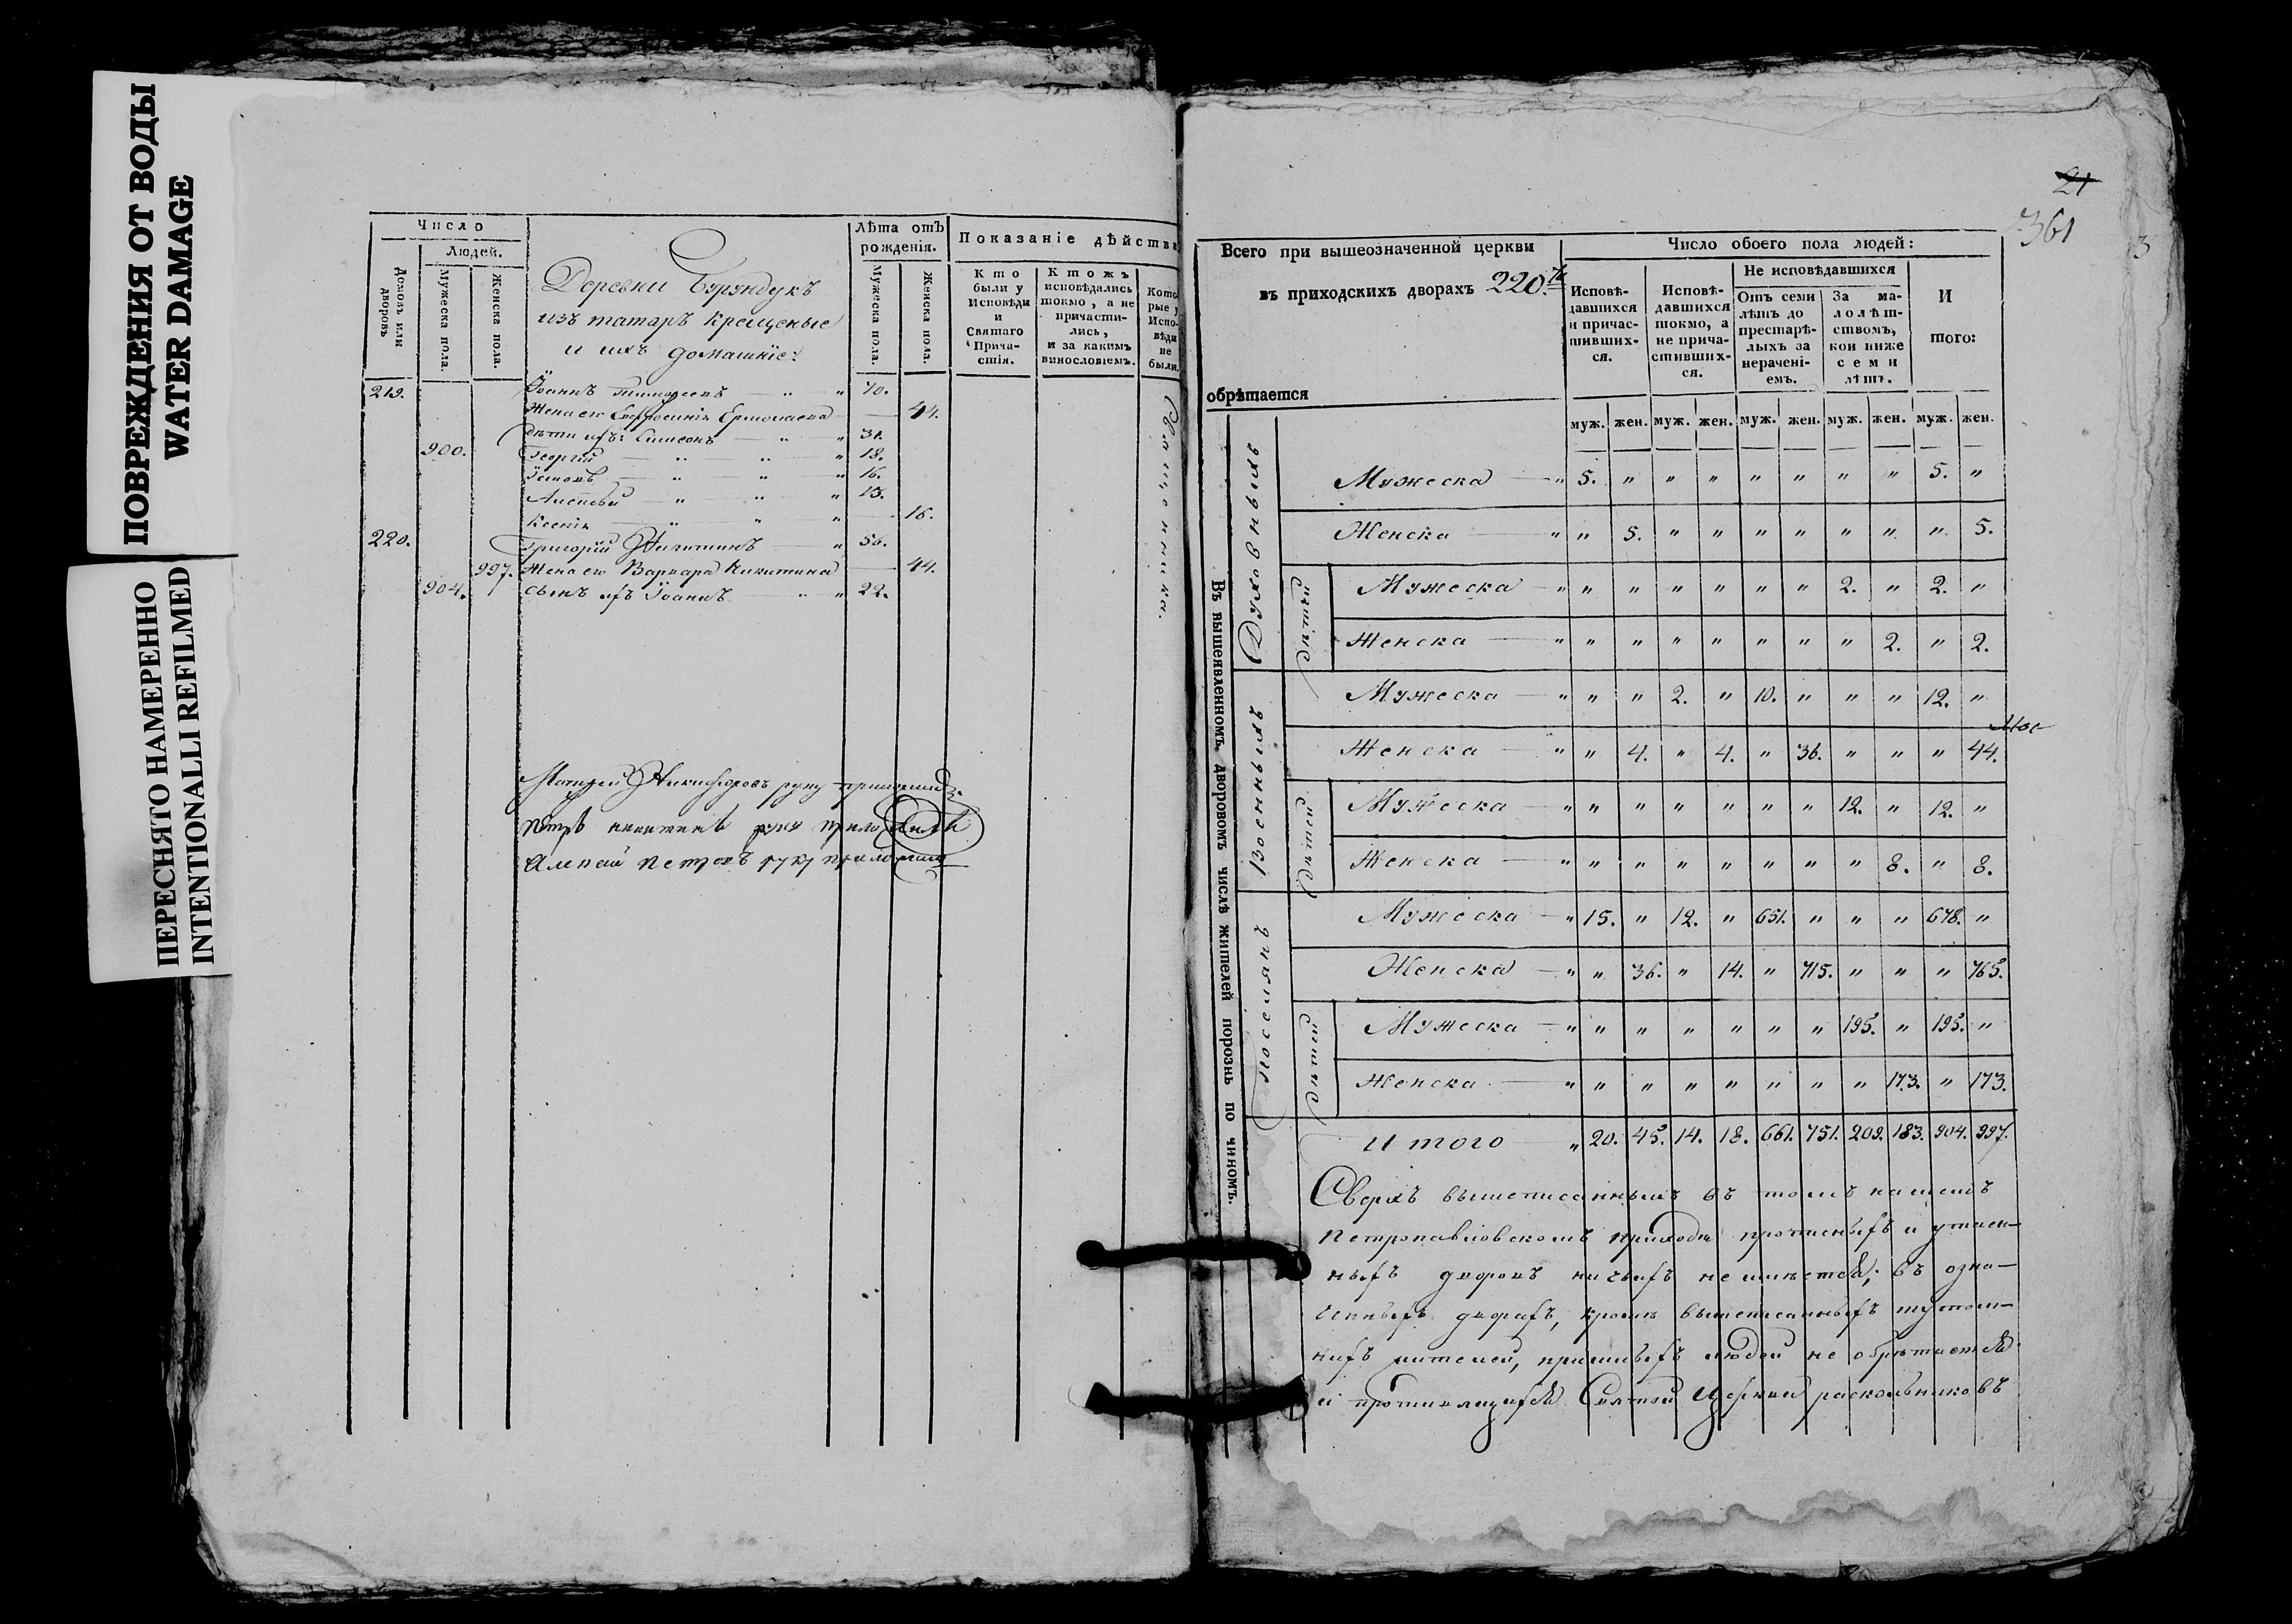 ПОВРЕЖДЕНИЯ ОТ ВОДЫ
WATER DAMAGE
ПЕРЕСНЯТО НАМЕРЕННО
INTENTIONALLI REFILMED
Число
Людей.
Домовъ или дворовъ
Мужеска пола.
Женска пола.
Деревни Бурундукъ
изъ татаръ крещеные
и ихъ домашніе:
Лѣта отъ рожденія.
Мужеска пола.
Женска пола.
Показаніе дѣйства
Кто были у Исповѣди и Святаго Прича- стія.
Ктожъ исповѣдались токмо, а не причасти- лись, и за какимъ винословіемъ.
Кото рые у Испо- вѣди не были.
219. Іоаннъ Тимофеевъ " " 70.
Жена его Евфросинія Ермолаева 44.
дѣти ихъ: Симеонъ " " 31.
900. Георгій " " " 18.
" " " 16.
Алексѣй " " " 13.
Ксенія " " " 16.
220. Григорій Никитинъ " 56.
997. Жена его Варвара Никитина 44.
904. сынъ ихъ Іоаннъ " " 22.
Матвей Никифоровъ руку приложилъ.
Петръ никитинъ руку приложилъ
петровъ руку приложилъ
21
361
3
Всего при вышеозначенной церкви
въ приходскихъ дворахъ 220.
обрѣтается
Число обоего пола людей:
Исповѣ- давшихся и причас- тивших- ся.
Исповѣ- давшихся токмо, а не прича- стивших- ся.
Не исповѣдавшихся
Отъ семи лѣтъ до престарѣ- лыхъ за нерачені- емъ.
За ма- лолѣт- ствомъ, кои ниже семи лѣтъ.
И того:
муж. жен. муж. жен. муж. жен. муж. жен. муж. жен.
Въ вышеявленномъ дворовомъ числѣ жителей порознь по чиномъ.
Духовныхъ
Мужеска " 5. " " " " " " " 5. "
Женска " " 5. " " " " " " " 5.
дѣтей
Мужеска " " " " " " " 2. " 2. "
Женска " " " " " " " " 2. " 2.
Военныхъ
Мужеска " " " 2. " 10. " " " 12. "
Женска " " 4. " 4. " 36. " " " 44.
дѣтей
Мужеска " " " " " " " 12. " 12. "
Женска " " " " " " " " 8. " 8.
поселянъ
Мужеска " 15. " 12. " 651. " " " 678. "
Женска " " 36. " 14. " 715. " " " 765.
дѣтей
Мужеска " " " " " " " 195. " 195. "
Женска " " " " " " " " 173. " 173.
И того " 20. 45. 14. 18. 661. 751. 209. 183. 904. 997.
Сверхъ вышеписанныхъ въ томъ нашемъ
Петропавловскомъ приходѣ и утаен-
ныхъ дворовъ ничьихъ не имѣется; въ озна-
ченныхъ дворахъ, кромѣ вышеписанныхъ тутош-
нихъ жителей, пришлыхъ людей не обрѣтается
и противящихся Святой Церкви раскольниковъ